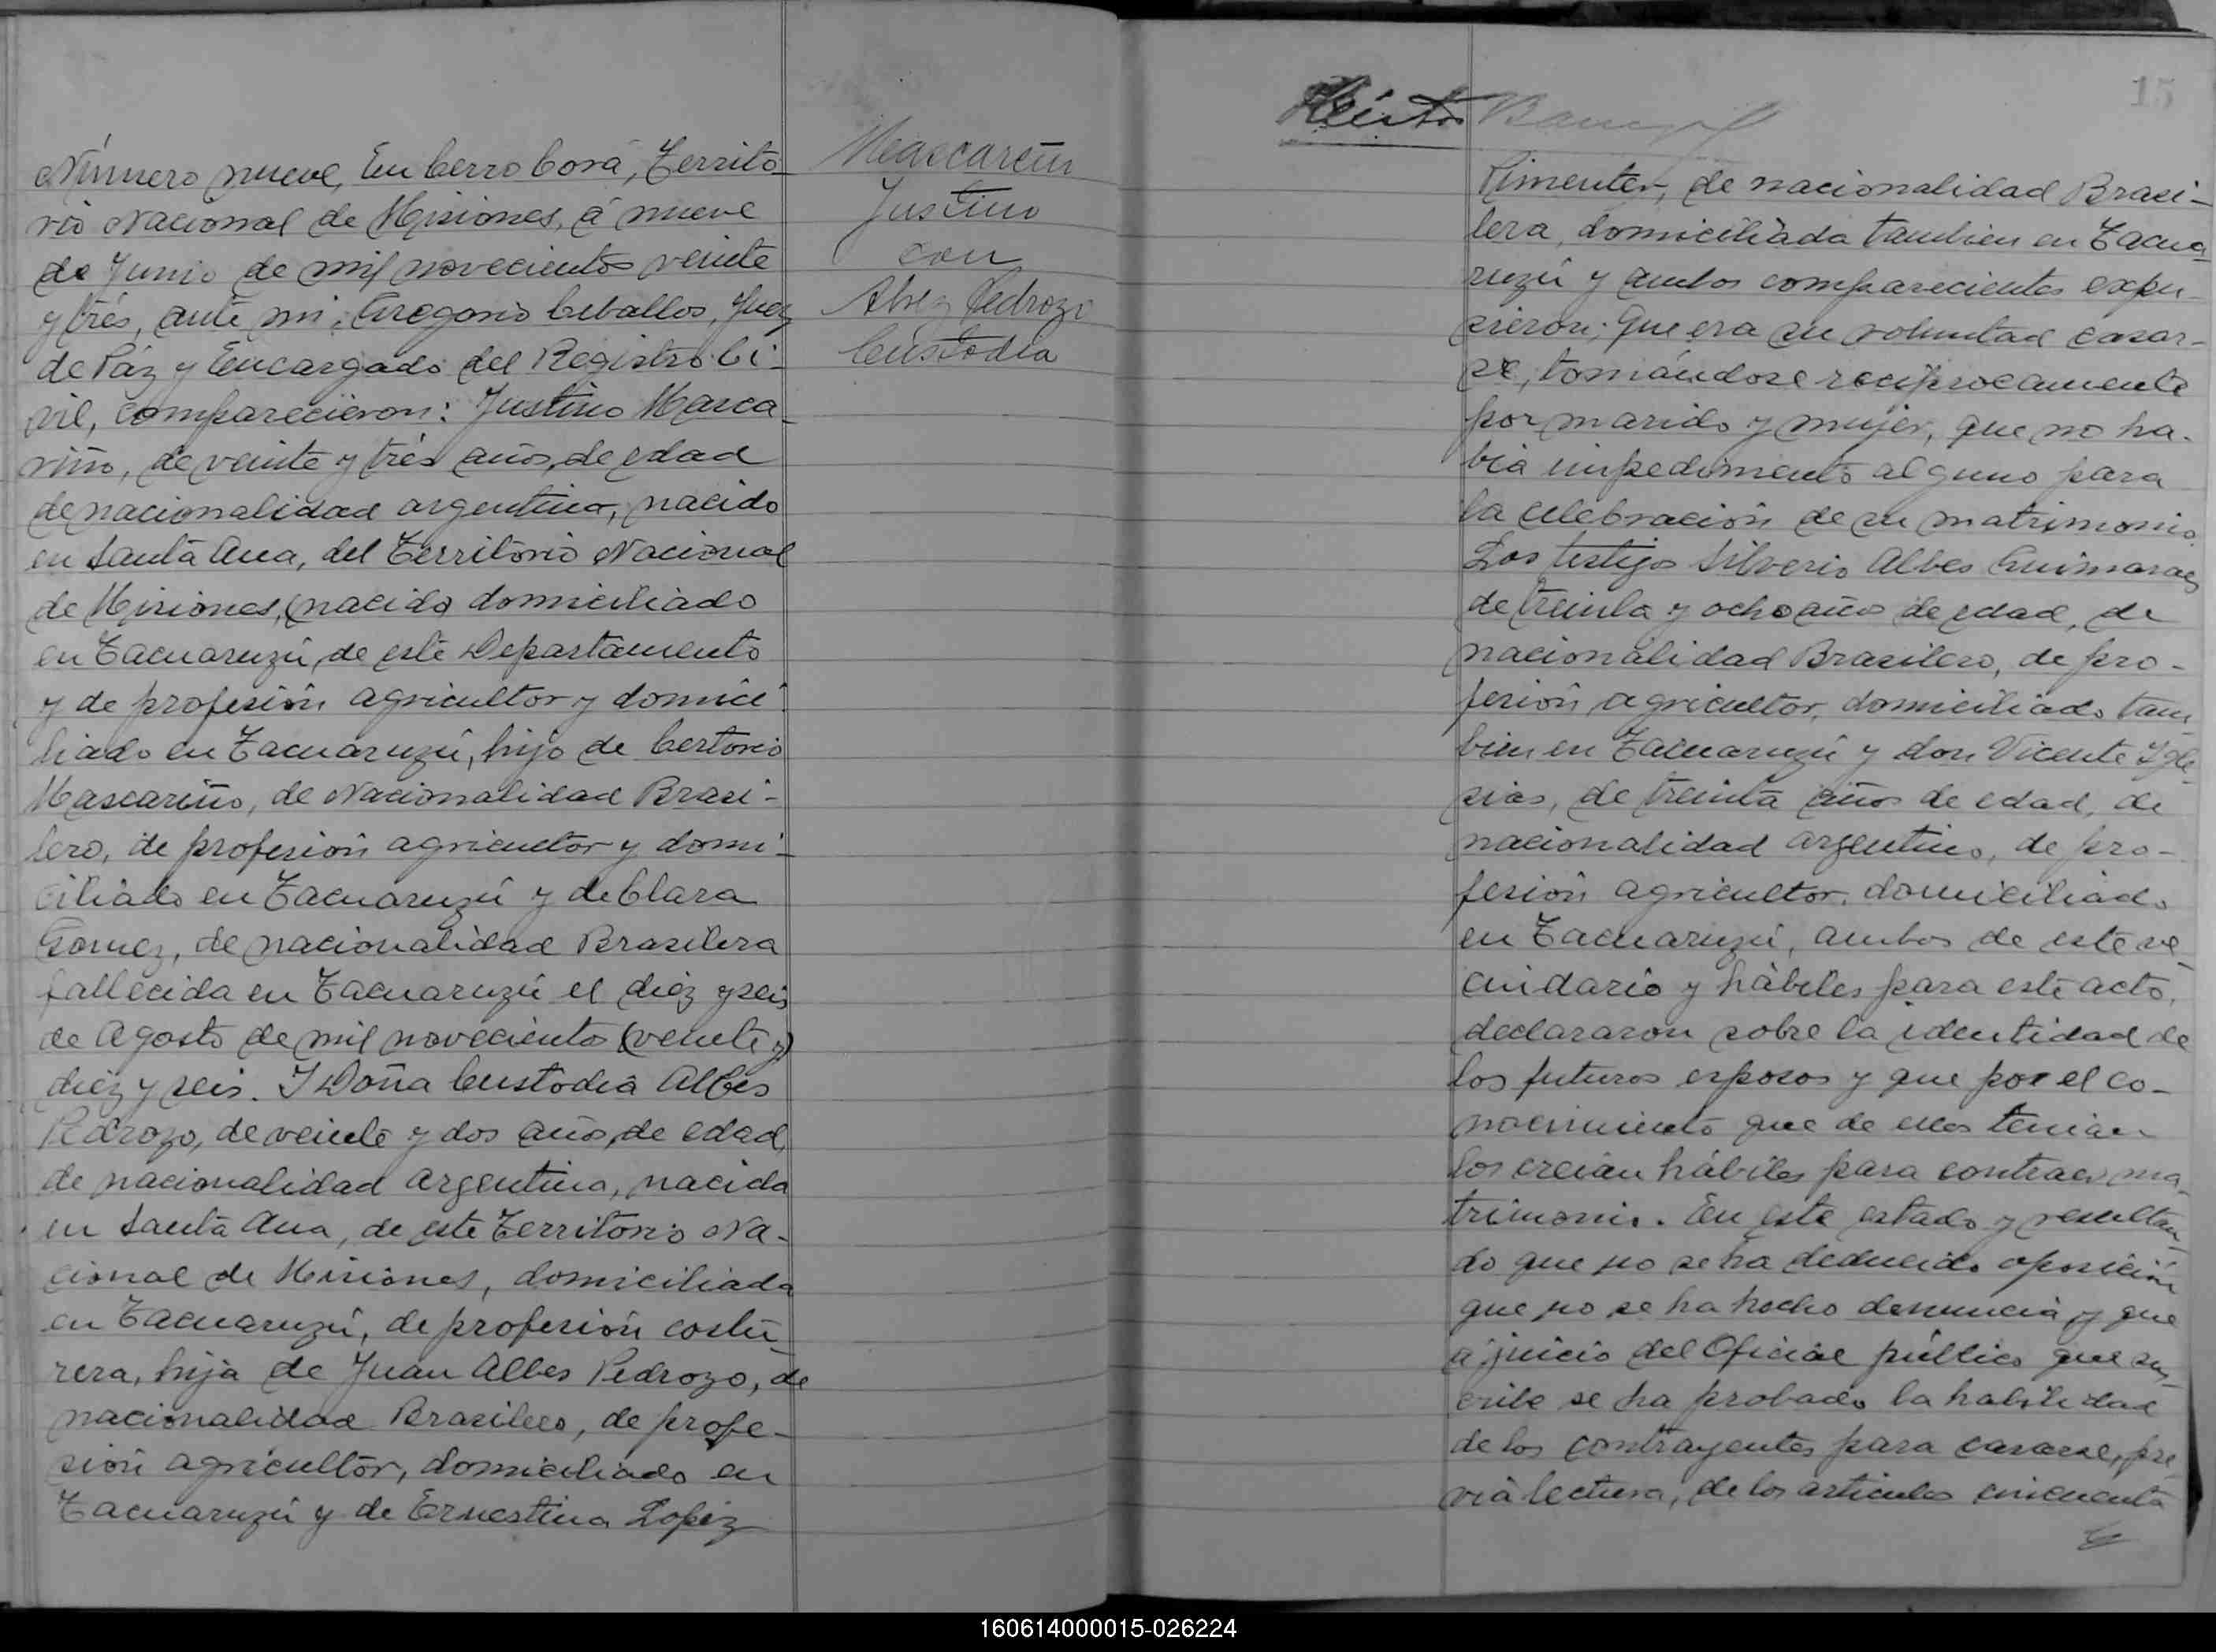 Número nueve, En Cerro Corá, Territo-
rio Nacional de Misiones, á nueve
de Junio de mil novecientos veinte
y trés, ante mi, Gregorio Ceballos, Juez
de Páz y Encargado del Registro Ci-
vil, comparecieron: Justino Masca-
riño, de veinte y trés años, de edad
de nacionalidad argentino, nacido
en Santa Ana, del Territorio Nacional
de Misiones, (nacido) domiciliado
en Tacuaruzú, de este Departamento
y de profesión agricultor y domici-
liado en Tacuaruzú, hijo de Certorio
Mascariño, de Nacionalidad Brasi-
lero, de profesión agricultor y domi-
ciliado en Tacuaruzú y de Clara
Gomez, de nacionalidad Brasilera
fallecida en Tacuaruzú el diez y seis
de Agosto de mil novecientos (veinte y)
diez y seis. Y Doña Custodia Albes
Pedrozo, de veinte y dos años, de edad,
de nacionalidad argentina, nacida
en Santa Ana, de este Territorio Na-
cional de Misiones, domiciliada
en Tacuaruzú, de profesión costu-
rera, hija de Juan Albes Pedrozo, de
nacionalidad Brasilero, de profe-
sión agricultor, domiciliado en
Tacuaruzú y de Ernestina Lopez
Justino
con
Pedrozo
Custodia
15
Pimentel, de nacionalidad Brasi-
lera, domiciliada tambien en Tacua-
ruzú y ambos comparecientes expu-
sieron: Que era su voluntad casar-
se, tomándose reciprocamente
por marido y mujer, que no ha-
bia impedimento alguno para
la celebración de su matrimonio.
Los testigos Silverio Albes Guimaraes
de treinta y ocho años de edad, de
nacionalidad Brasilero, de pro-
fesión agricultor, domiciliado tam-
bien en Tacuaruzú y don Vicente Igle-
sias, de treinta años de edad, de
nacionalidad argentino, de pro-
fesión agricultor, domiciliado
en Tacuaruzú, ambos de este ve-
cindario y hábiles para este acto,
declararon sobre la identidad de
los futuros esposos y que por el co-
nocimiento que de ellos tenian
los creian hábiles para contraer ma-
trimonio. En este estado y resultan-
do que no se ha deducido oposición
que no se ha hecho denuncia y que
a juicio del Oficial público que sus-
cribe se ha probado la habilidad
de los contrayentes para casarse, pre-
via lectura, de los articulos cincuenta
160614000015-026224